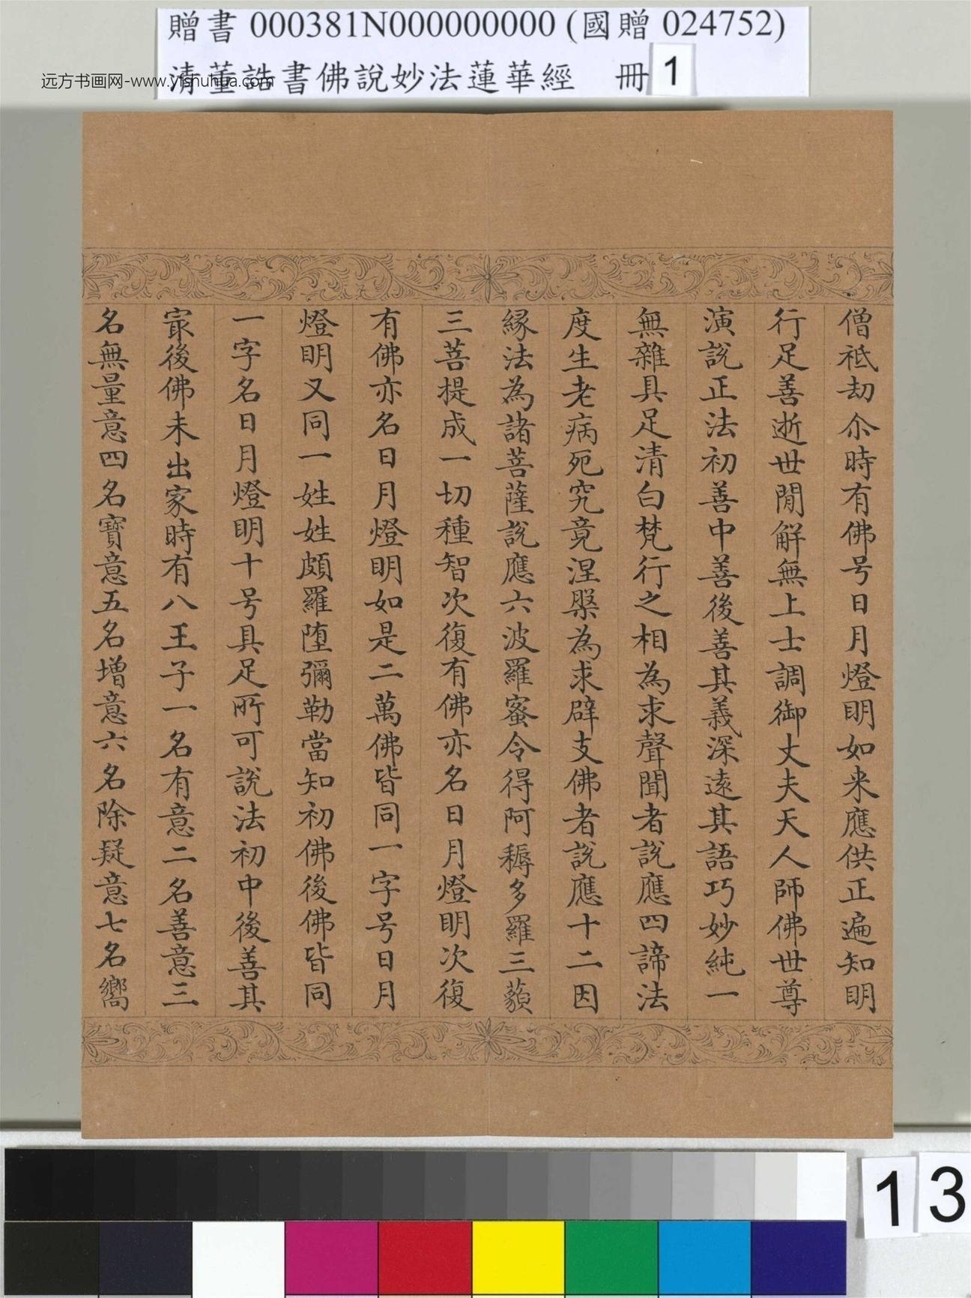 贈書 000381N000000000 (國贈 024752)
清董誥書佛說妙法蓮華經 冊 1
远方书画网-www.yishuhua.com
僧祇劫尒時有佛号日月燈明如来應供正遍知明
行足善逝世閒解無上士調御丈夫天人師佛世尊
演說正法初善中善後善其義深遠其語巧妙純一
無雜具足清白梵行之相為求聲聞者說應四諦法
度生老病死究竟涅槃為求辟支佛者說應十二因
緣法為諸菩薩說應六波羅蜜令得阿耨多羅三藐
三菩提成一切種智次復有佛亦名日月燈明次復
有佛亦名日月燈明如是二萬佛皆同一字号日月
燈明又同一姓姓頗羅墮彌勒當知初佛後佛皆同
一字名日月燈明十号具足所可說法初中後善其
㝡後佛未出家時有八王子一名有意二名善意三
名無量意四名寶意五名增意六名除疑意七名嚮
13